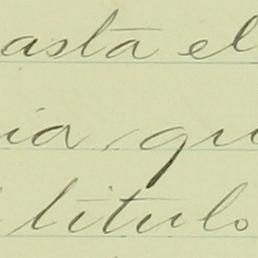 asta el
ia, qu
titulo